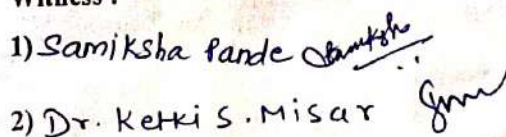 Witness :
1) Samiksha Pande Samiksha
2) Dr. Ketki S. Misar